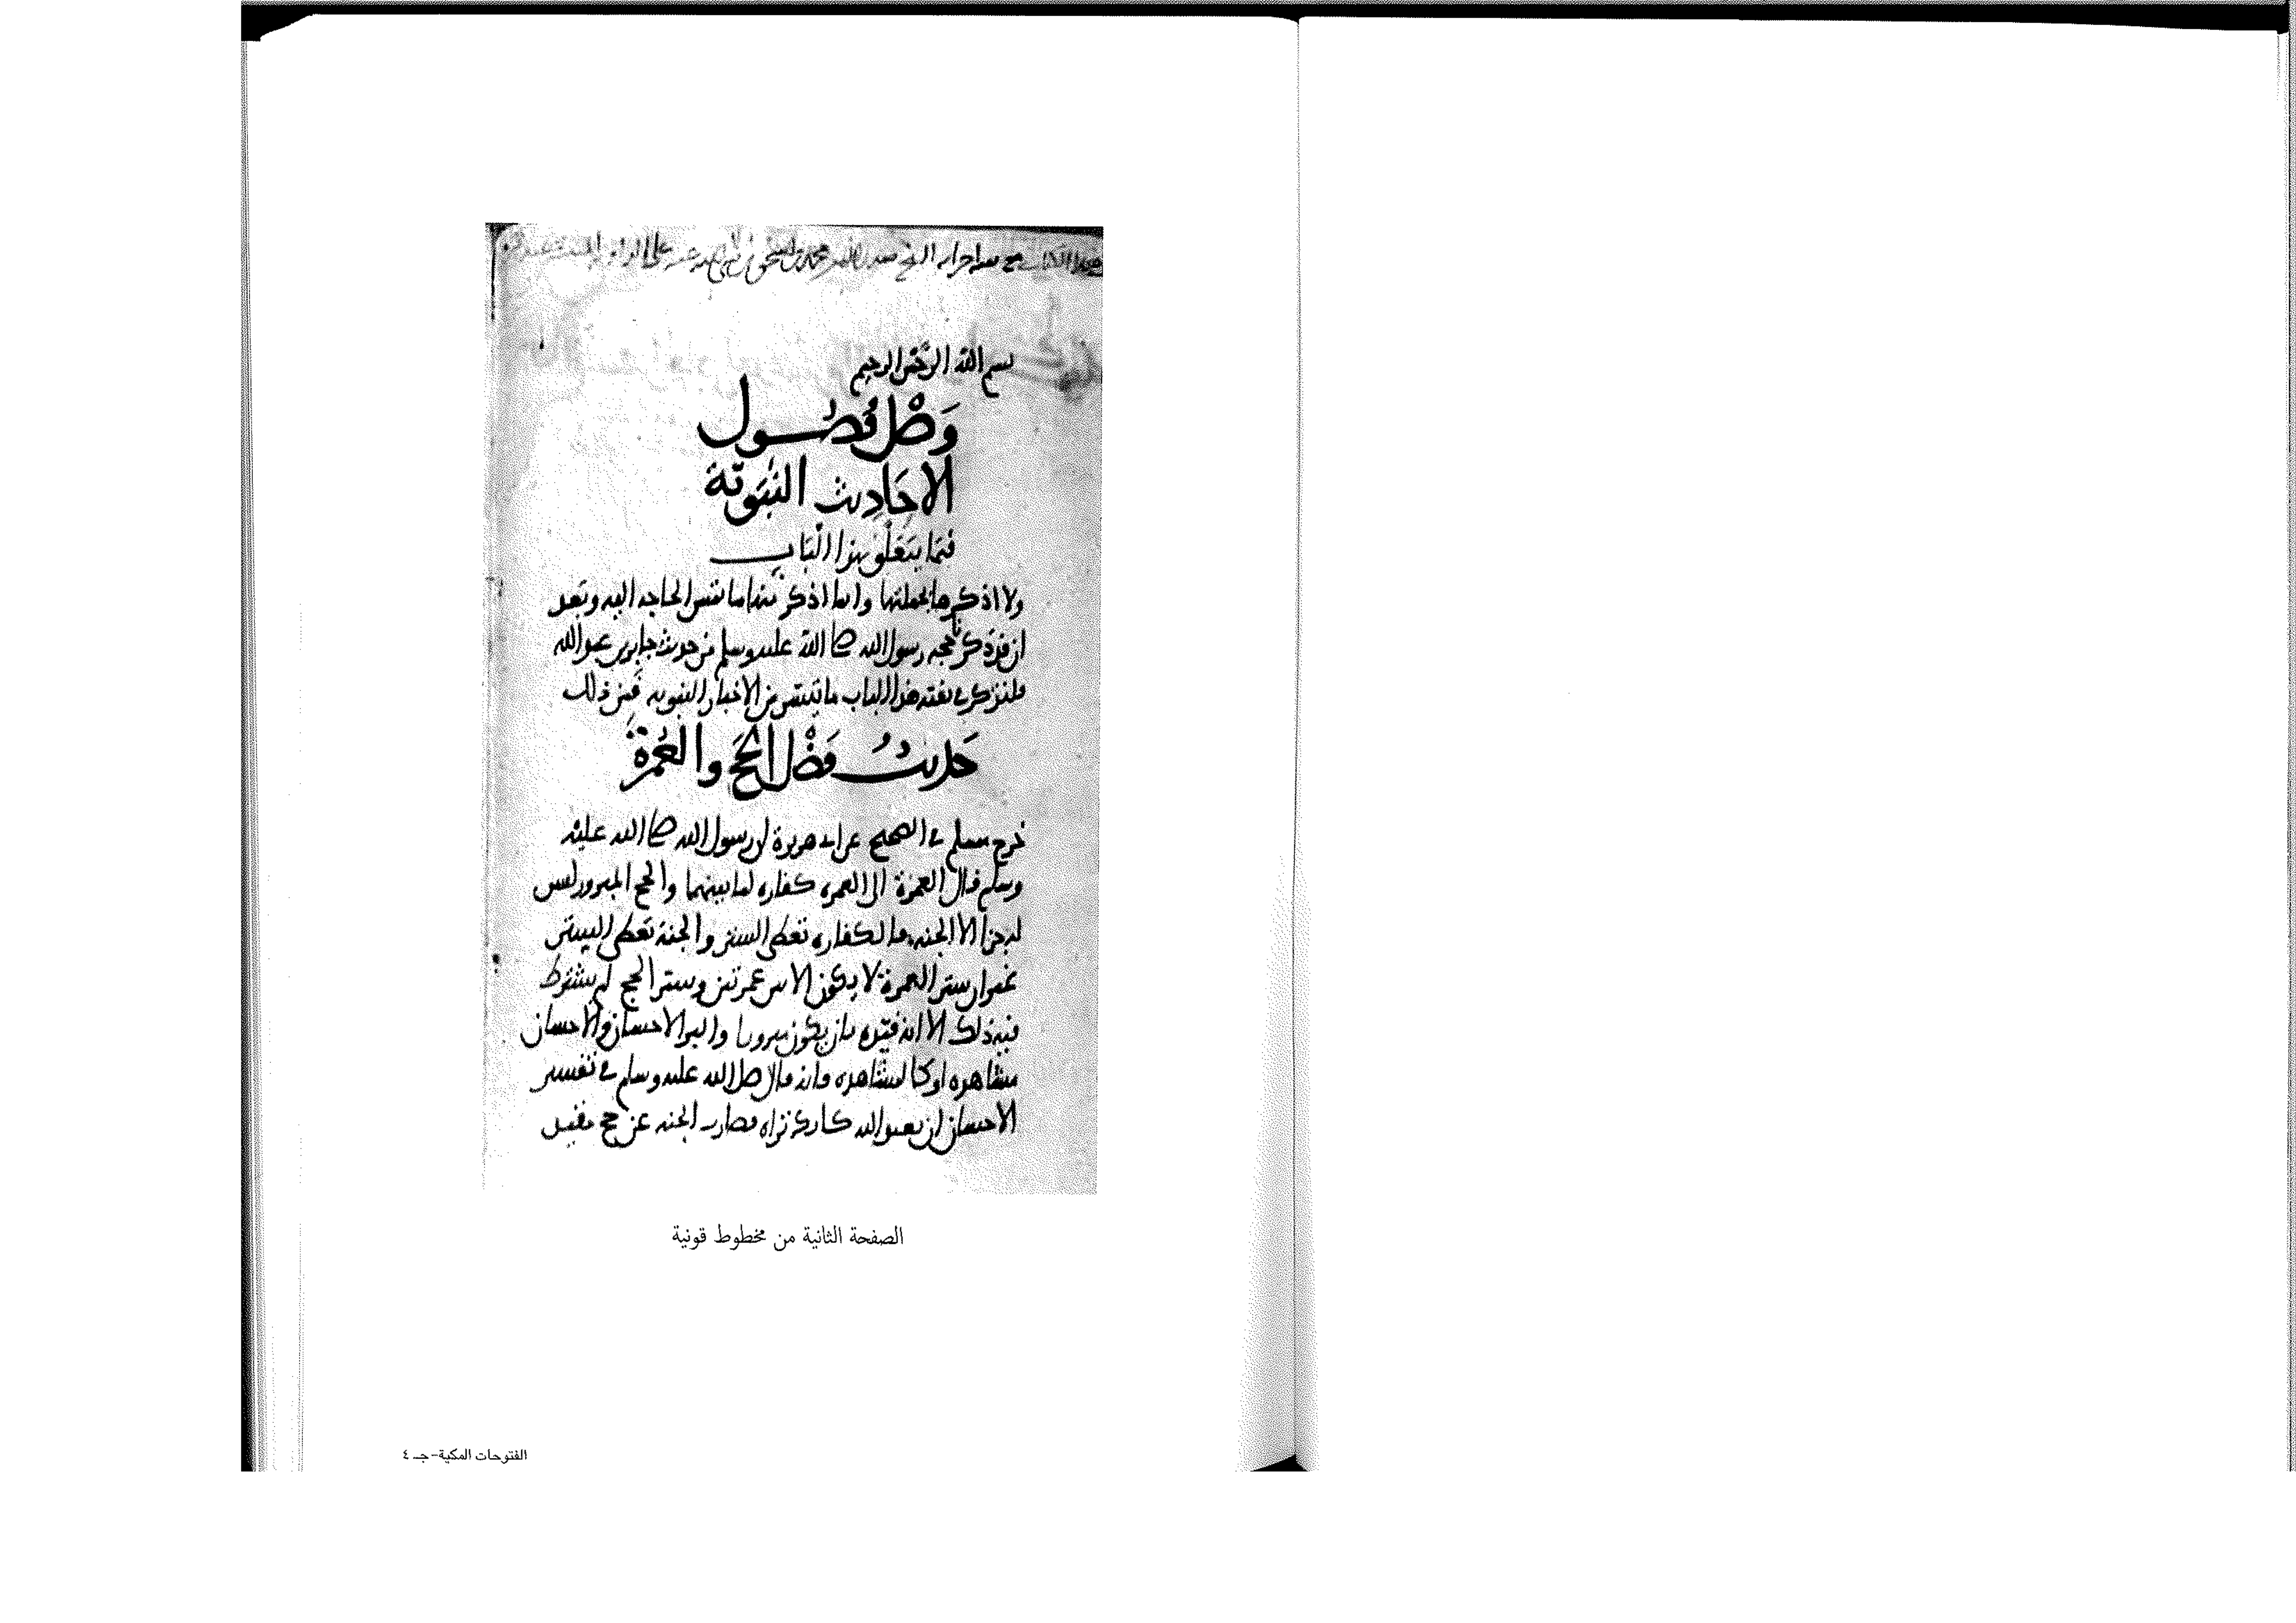 هذا الكتاب مع سائر اجزائه الشيخ صدر الدين محمد بن اسحق رضي الله عنه على
بسم الله الرحمن الرحيم
وَصْل فصُول
الاحَادِيث النبَوية
فيمَا يتعَلق بهذا الْبَاب
ولا اذكرها بجملتها وانما اذكر منها ما تمس الحاجه اليه وبَعد
ان قد ذكرنا حجه رسول الله صلى الله عليه وسلم من حديث جابر بن عبد الله
فلنذكر في بقيه هذا الباب ما تيسر من الاخبار النبويه فمن ذلك
حَديثُ فَضْل الحَجّ والعُمْرة
خرج مسلم في الصحيح عن ابي هريرة ان رسول الله صلى الله عليه
وسلم قال العمرة الى العمره كفاره لما بينهما والحج المبرور ليس
له جزا الا الجنه فالكفاره تعطى الستر والجنة تعطى الستر
غير ان ستر العمرة لا يكون الا بين عمرتين وستر الحج لم يشترط
فيه ذلك الا انه قيده بان يكون مبرورا والبر الاحسان والاحسان
مشاهده او كالمشاهده فانه قال صلى الله عليه وسلم في تفسير
الاحسان ان تعبد الله كانك تراه فصارت الجنه عن حج مقيد
الصفحة الثانية من مخطوط قونية
الفتوحات المكية-جـ ٤